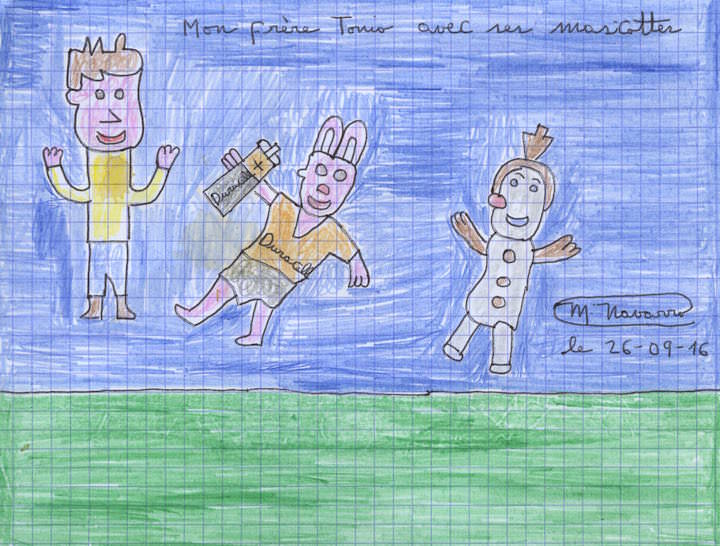 Mon frère Tonio avec ses mascottes
Duracell +
Duracell
M. Navarro
le 26-09-16